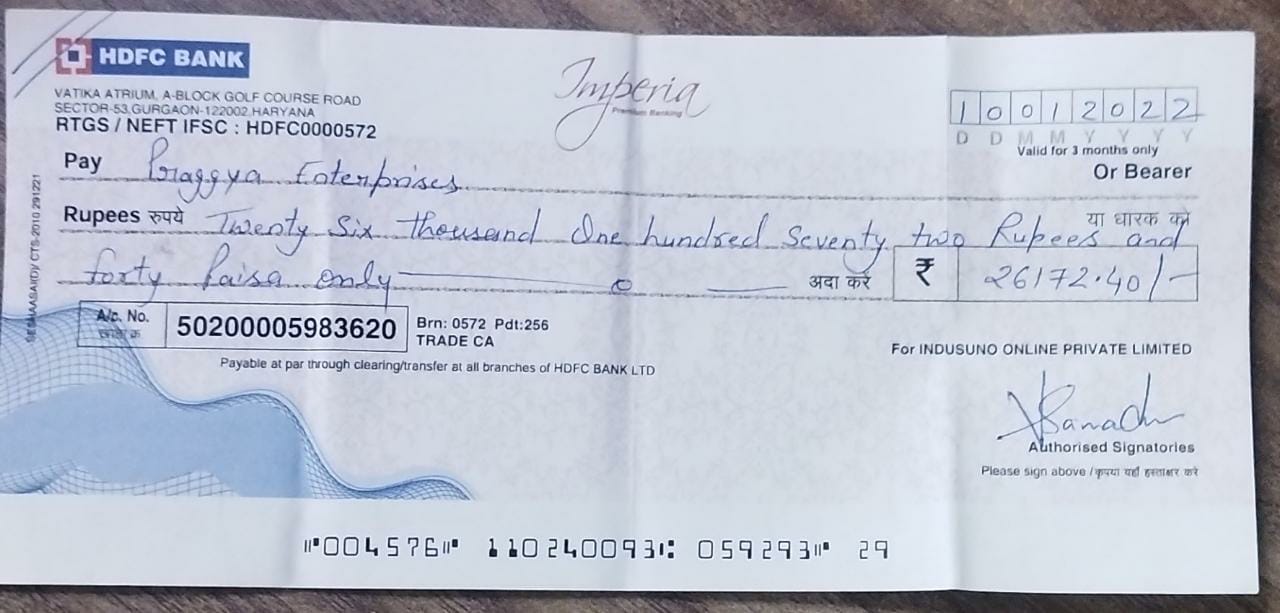 HDFC BANK
Imperia
Premium Banking
VATIKA ATRIUM, A-BLOCK GOLF COURSE ROAD
SECTOR-53,GURGAON-122002,HARYANA
RTGS / NEFT IFSC : HDFC0000572
1 0 0 1 2 0 2 2
D D M M Y Y Y Y
Valid for 3 months only
Pay Praggya Enterprises
Or Bearer
या धारक को
Rupees रुपये Twenty Six thousand One hundred Seventy two Rupees and
forty Paisa only अदा करें ₹ 26172.40/-
A/c. No. 50200005983620
Brn: 0572 Pdt:256
TRADE CA
Payable at par through clearing/transfer at all branches of HDFC BANK LTD
For INDUSUNO ONLINE PRIVATE LIMITED
Authorised Signatories
Please sign above / कृपया यहाँ हस्ताक्षर करें
CTS-2010 291221
⑈004576⑈ 110240093⑆ 059293⑈ 29